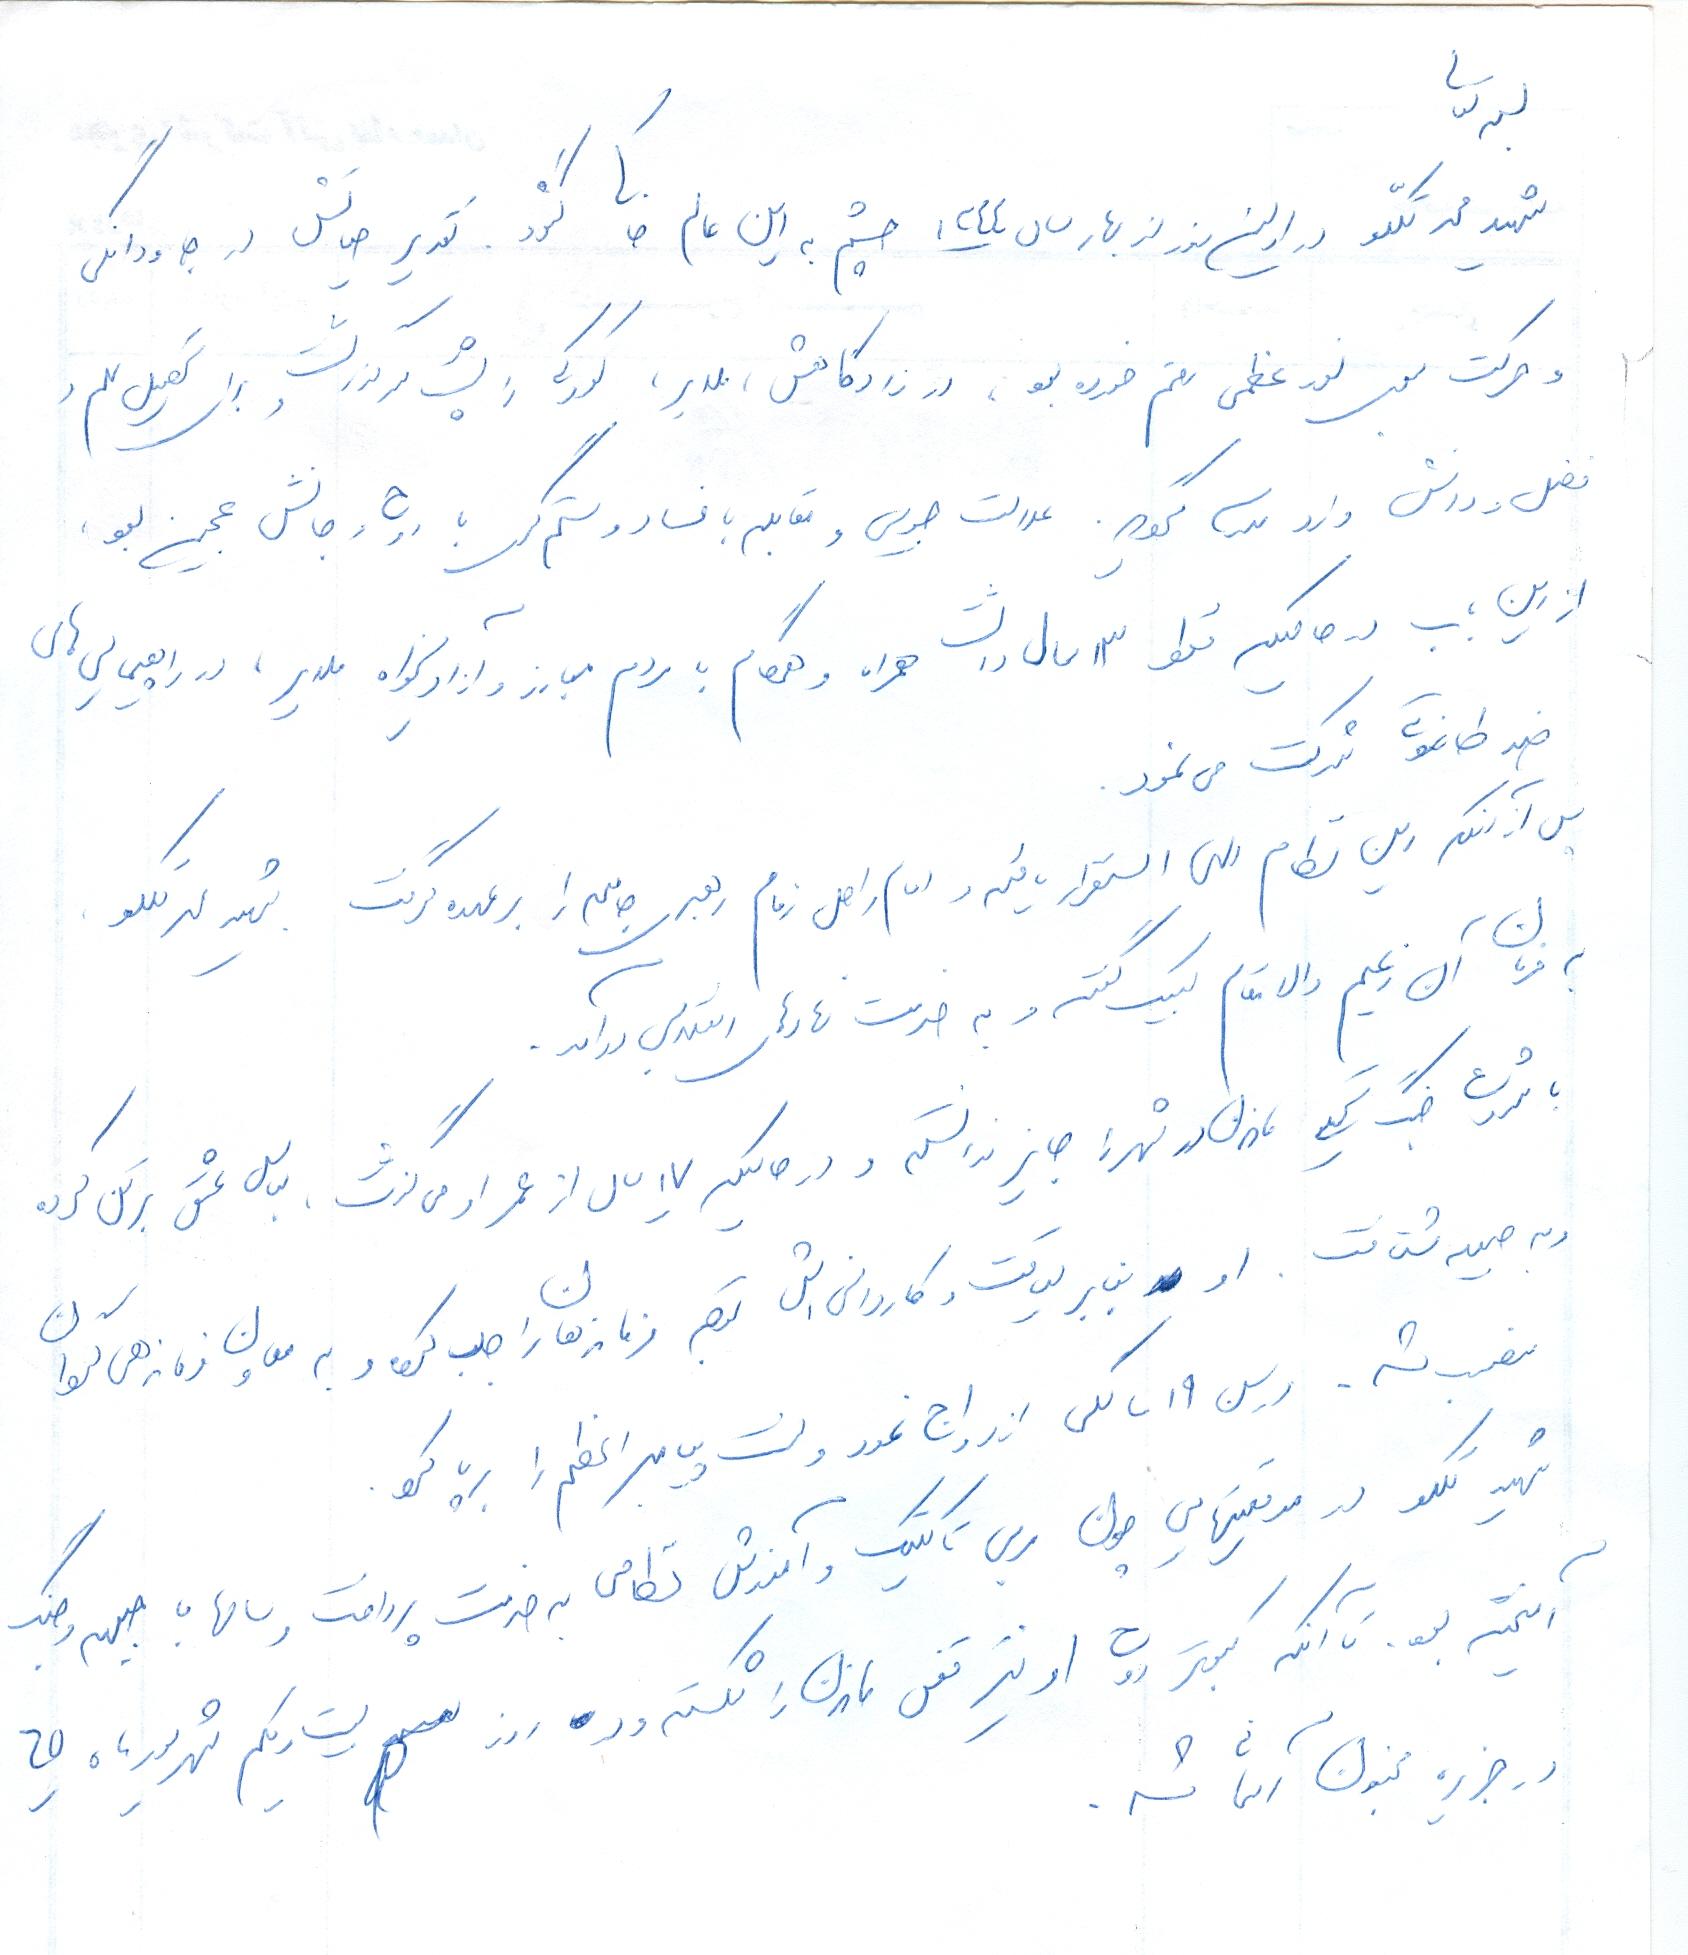 بسمه تعالی
شهید محمد تکلو در اولین روز از بهار سال ۱۳۴۴ چشم به این عالم خاکی گشود. تقدیر حیاتش در جاودانگی
و حرکت بسوی نور عظمی رقم خورده بود، در زادگاهش، ملایر، کودکی را پشت سر گذاشت و برای تحصیل علم و
فضل و دانش وارد مدرسه گردید. عدالت جویی و مقابله با فساد و ستم گری با روح و جانش عجین بود،
از این باب در حالیکه فقط ۱۳ سال داشت همراه و همگام با مردم مبارز و آزادیخواه ملایر، در راهپیمایی های
ضد طاغوت شرکت می نمود.
پس از آنکه این نظام الهی استقرار یافته و امام راحل زمام رهبری جامعه را بر عهده گرفت شهید محمد تکلو،
به فرمان آن زعیم والامقام لبیک گفته و به خدمت نهادهای انقلابی درآمد.
با شروع جنگ تحمیلی ماندن در شهر را جایز ندانسته و در حالیکه ۱۷ سال از عمر او می گذشت، لباس عشق بر تن کرده
و به جبهه شتافت. او بنابر لیاقت و کاردانی اش توجه فرماندهان را جلب کرد و به معاون فرماندهی گردان
منصوب شد. در سن ۱۹ سالگی ازدواج نمود و سنت پیامبر اعظم را برپا کرد.
شهید تکلو در موقعیتهایی چون مربی تاکتیک و آموزش نظامی به خدمت پرداخت و سالها با جبهه و جنگ
آمیخته بود. تا آنکه کبوتر روح او نیز قفس ماندن را شکسته و در روز بیست و یکم شهریور ماه ۶۵
در جزیره مجنون آسمانی شد.